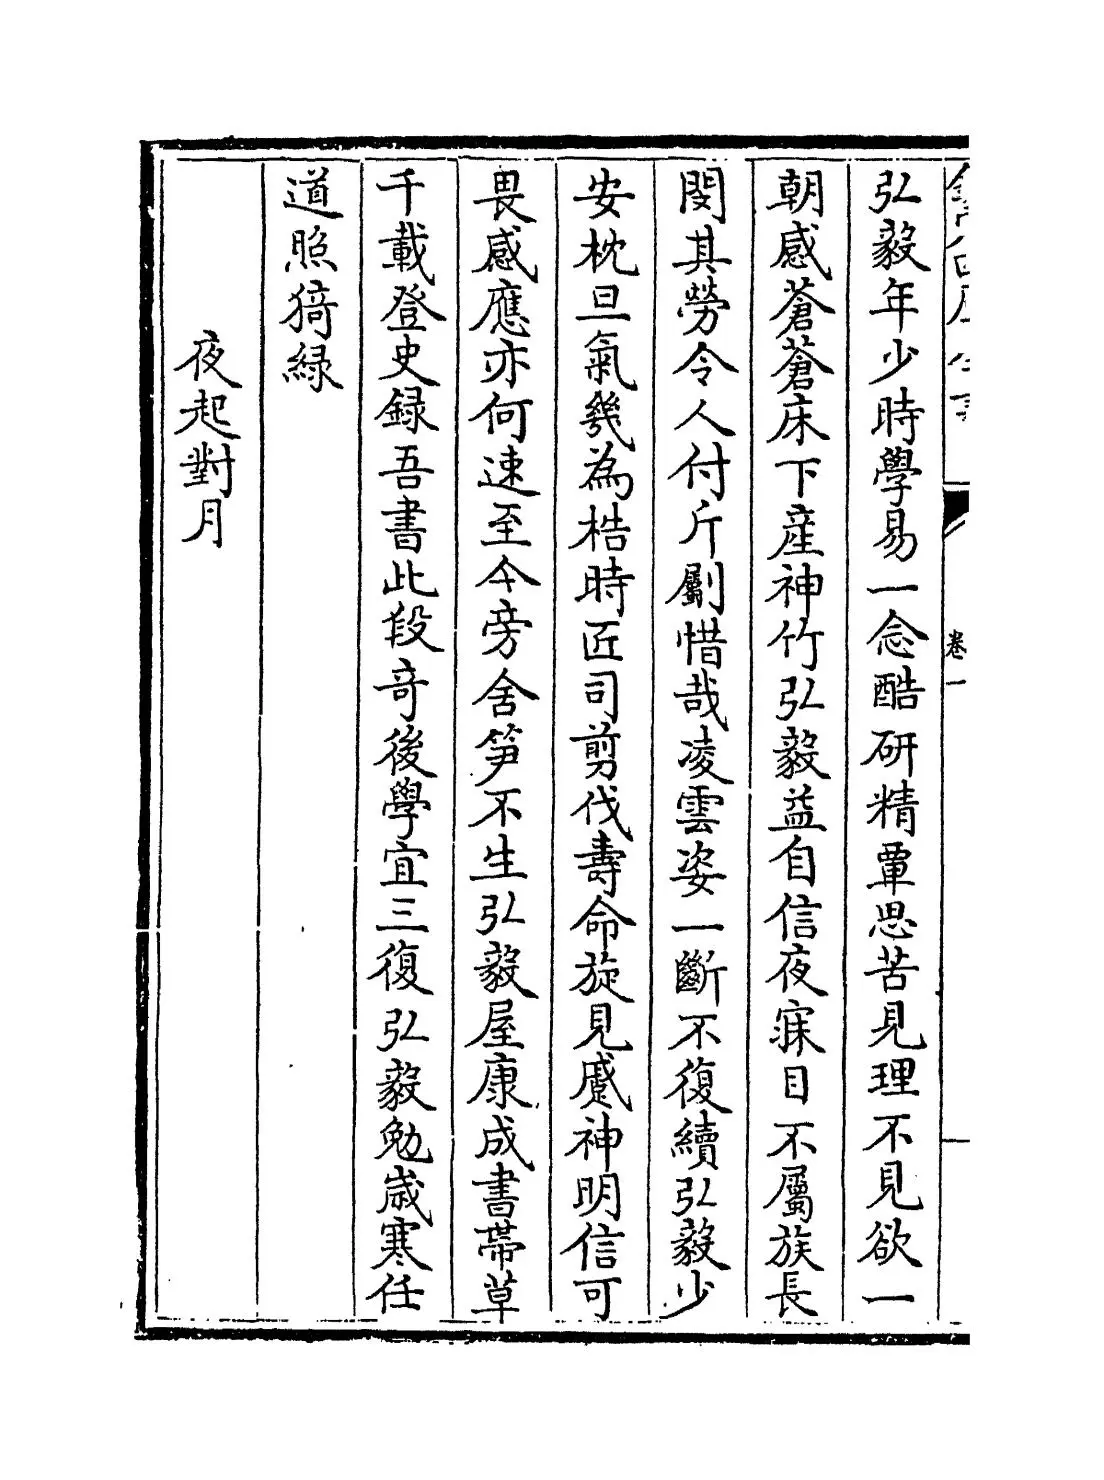 弘毅年少時學易一念酷研精覃思苦見理不見欲一
朝感蒼蒼床下產神竹弘毅益自信夜寐目不屬族長
閔其勞令人付斤劚惜哉凌雲姿一斷不復續弘毅少
安枕旦氣幾為梏時匠司剪伐壽命旋見蹙神明信可
畏感應亦何速至今旁舍笋不生弘毅屋康成書帶草
千載登史録吾書此段奇後學宜三復弘毅勉歲寒任
道照猗緑
夜起對月
卷一